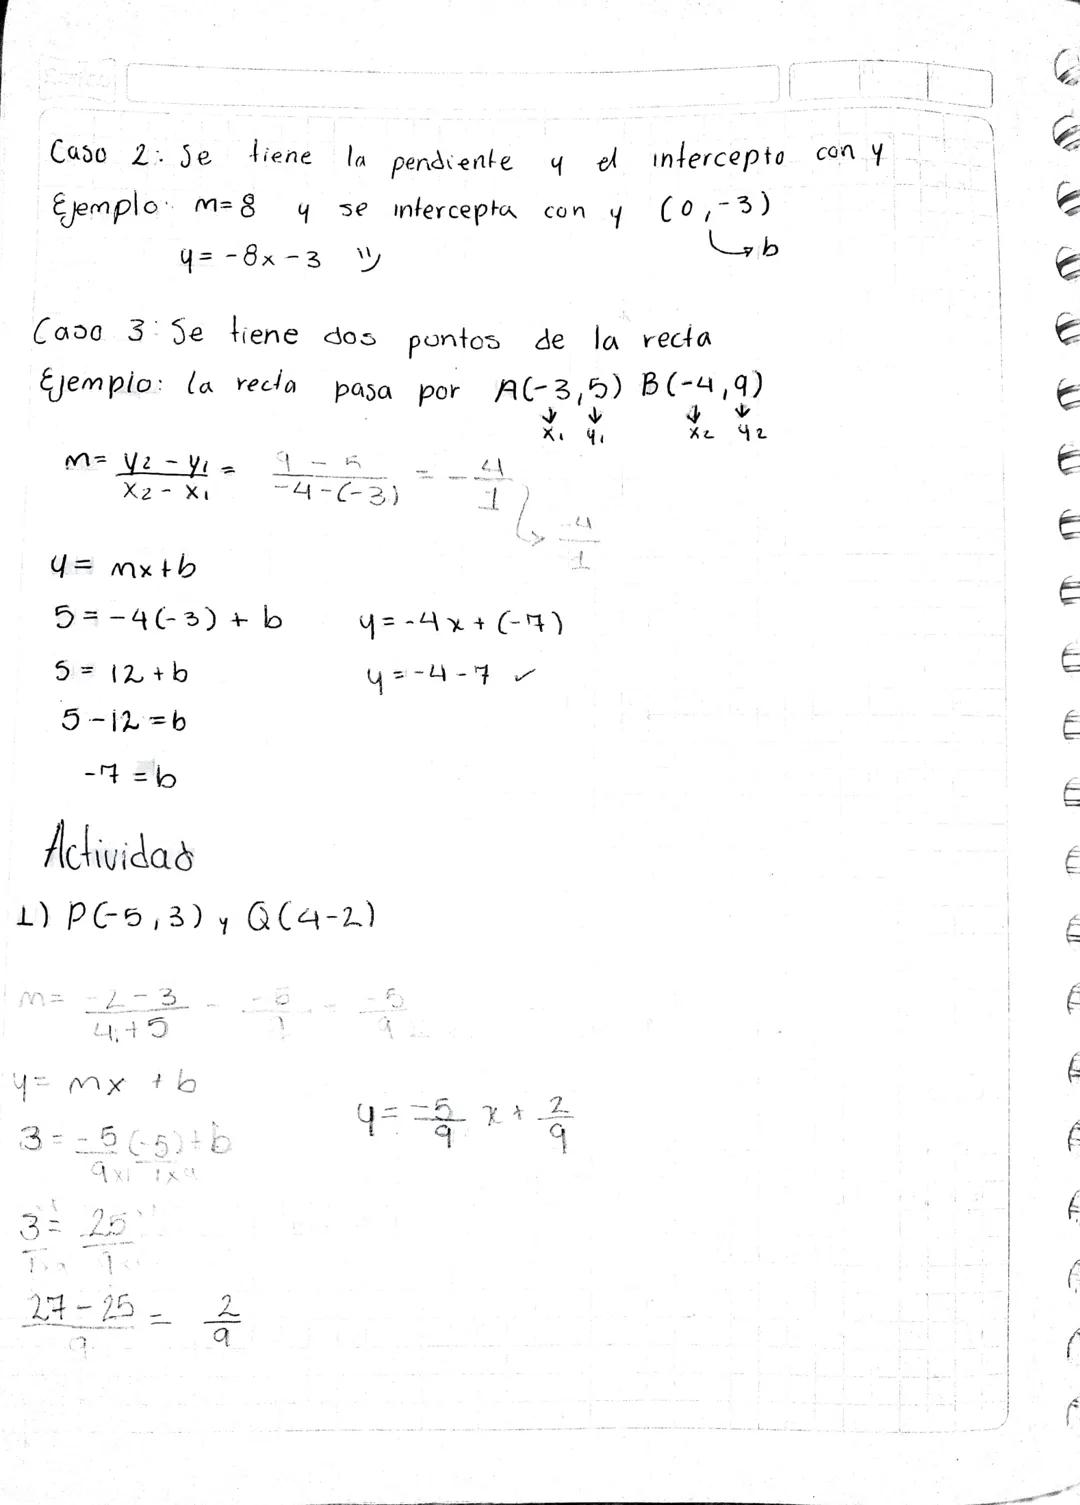 Caso 2: Se tiene la pendiente y el intercepto con y
Ejemplo: m=8 y se intercepta con y (0,-3)
y = -8x - 3
↳ b
Caso 3: Se tiene dos puntos de la recta
Ejemplo: la recta pasa por A(-3,5) B(-4,9)
↓ ↓ ↓ ↓
x₁ y₁ x₂ y₂
m= y₂ - y₁ / x₂ - x₁ = 9 - 5 / -4-(-3) = - 4/1
↳ -4/1
y = mx+b
5 = -4(-3) + b
y = -4x + (-7)
5 = 12 + b
y = -4 - 7 ✓
5 - 12 = b
-7 = b
Actividad
1) P(-5,3) y Q(4-2)
m= -2-3 / 4+5 -5/9 -5/9
y= mx + b
y = -5/9 x + 2/9
3 = -5/9 (-5) + b
3 = 25
27-25 / 9 = 2/9